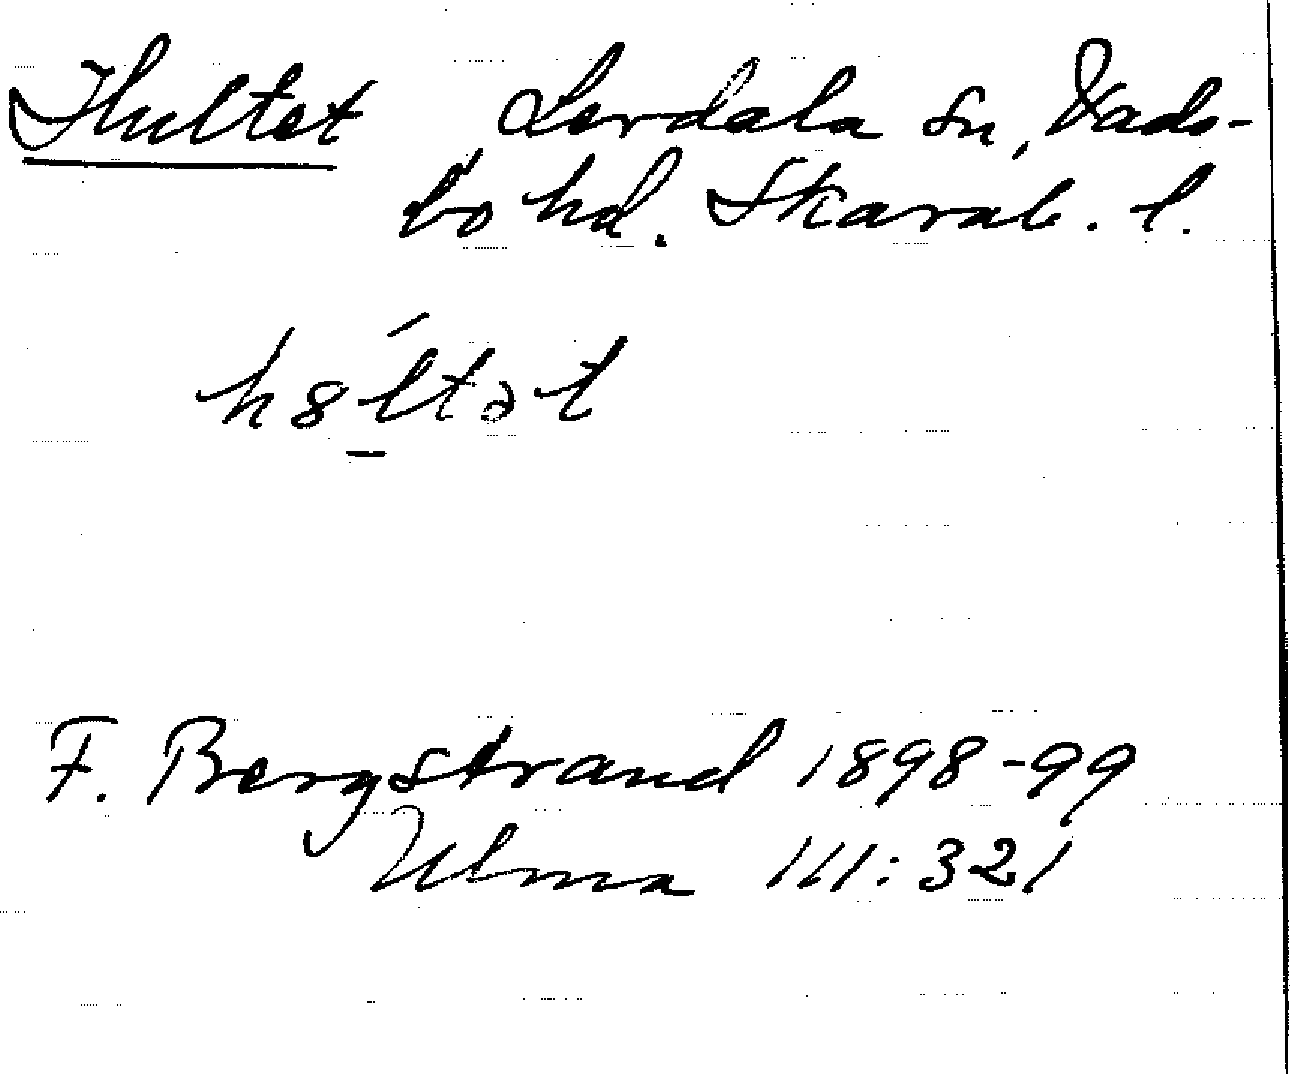 Hultet Lerdala sn, Vads-
bo hd. Skarab. l.
h8́ltət
F. Bergstrand 1898-99
Ulma 111:321